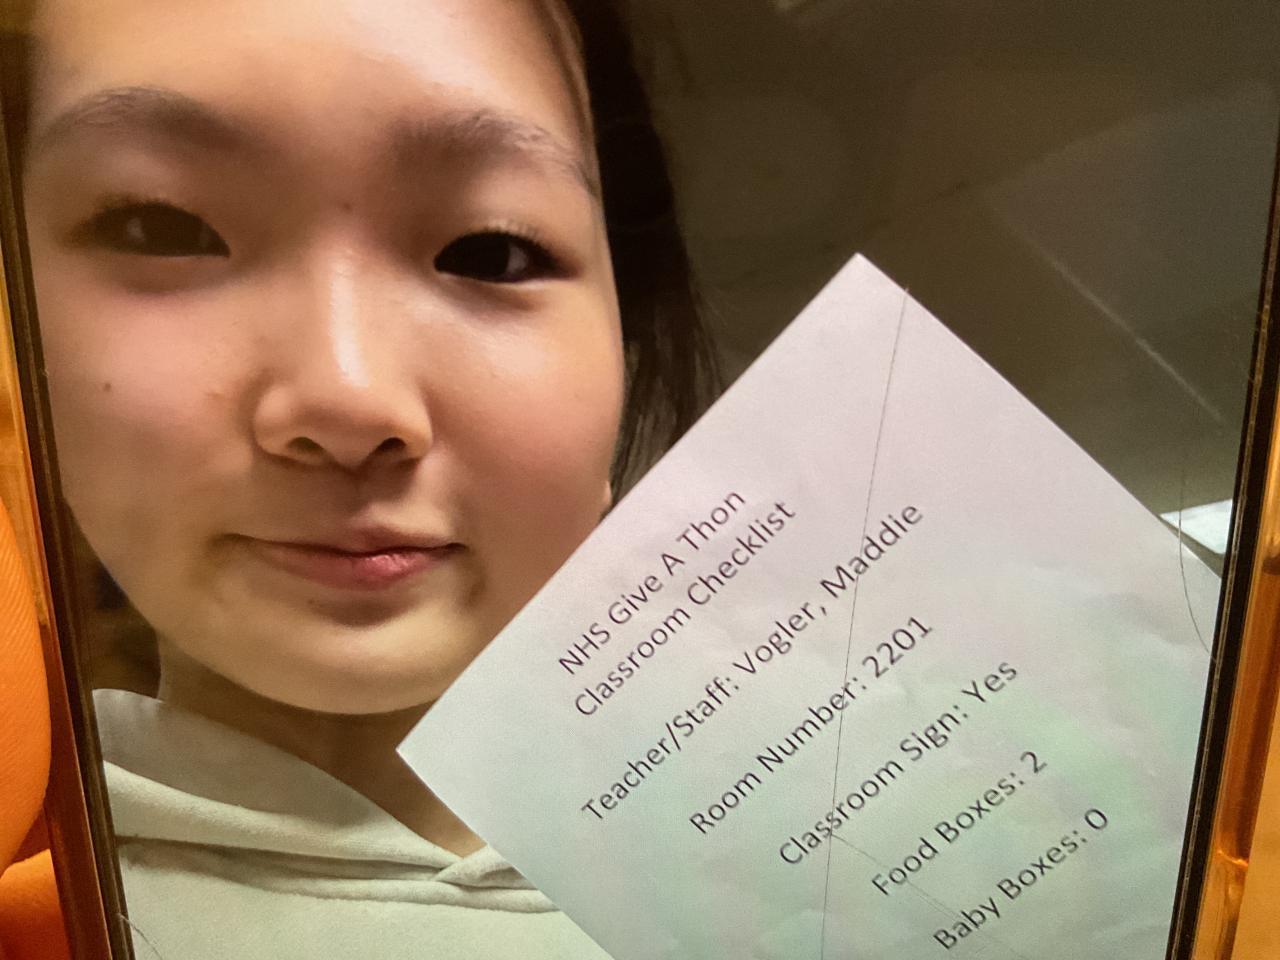 NHS Give A Thon
Classroom Checklist
Teacher/Staff: Vogler, Maddie
Room Number: 2201
Classroom Sign: Yes
Food Boxes: 2
Baby Boxes: 0